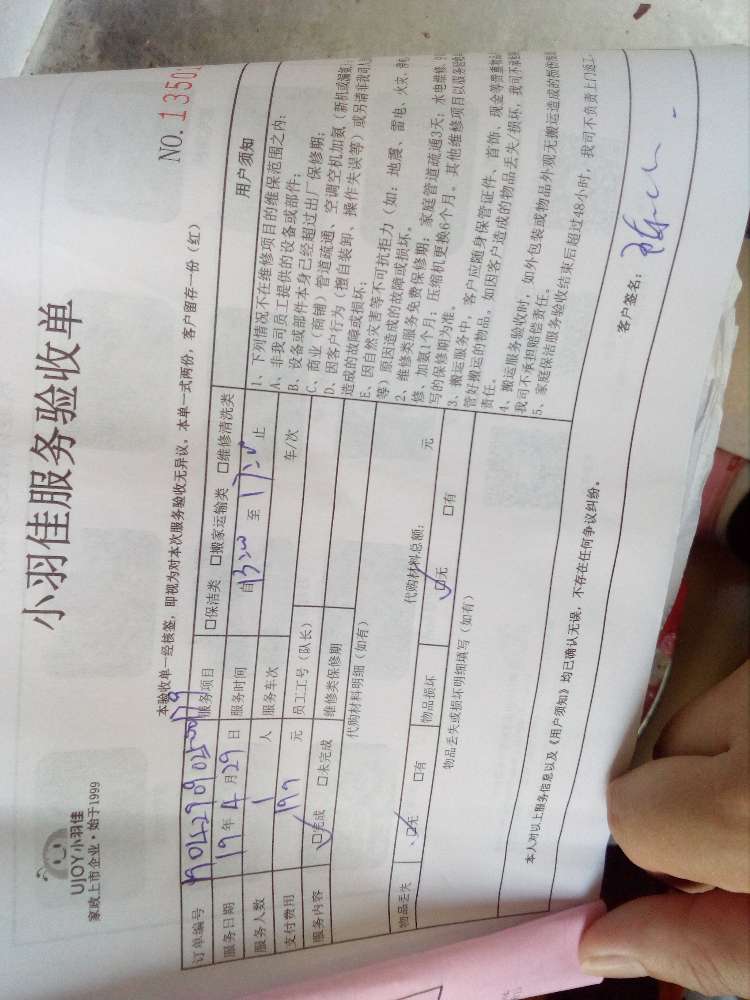 UJOY小羽佳
家政上市企业·始于1999
小羽佳服务验收单
NO.1350
本验收单一经核签，即视为对本次服务验收无异议。本单一式两份，客户留存一份（红）
订单编号
服务项目 □保洁类 □搬家运输类 □维修清洗类
服务日期 19年4月29日 服务时间 自13:00至17:00止
服务人数 1人 服务车次 车/次
支付费用 元 员工工号（队长）
服务内容 ☑完成 □未完成 维修类保修期
代购材料明细（如有）
代购材料总额： 元
物品丢失 ☑无 □有 物品损坏 ☑无 □有
物品丢失或损坏明细填写（如有）
用户须知
1、下列情况不在维修项目的维保范围之内：
A、非我司员工提供的设备或部件；
B、设备或部件本身已经超过出厂保修期；
C、商业（商铺）管道疏通、空调空机加氨（新机或漏氨
造成的故障或损坏；
D、因客户行为（擅自装卸、操作失误等）或另请非我司人
E、因自然灾害等不可抗拒力（如：地震、雷电、火灾、
等）原因造成的故障或损坏。
2、维修类服务免费保修期：家庭管道疏通3天；水电维修、
修、加氨1个月；压缩机更换6个月。其他维修项目以服务
写的保修期为准。
3、搬运服务中，客户应随身保管证件、首饰、现金等贵重物
管好搬运的物品。如因客户造成的物品丢失/损坏，我司不承
责任。
4、搬运服务验收时，如外包装或物品外观无搬运造成的损伤
我司不承担赔偿责任。
5、家庭保洁服务验收结束后超过48小时，我司不负责上门返工。
本人对以上服务信息以及《用户须知》均已确认无误，不存在任何争议纠纷。
客户签名：